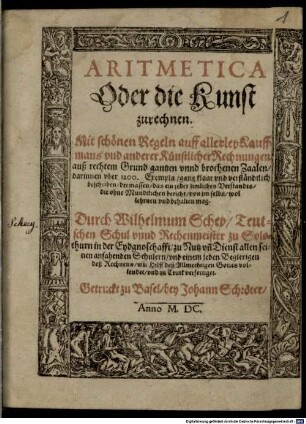 1
ARITMETICA
Oder die Kunst
zurechnen.
Mit schönen Regeln auff allerley Kauff
mans vnd anderer Künstlicher Rechnungen
auß rechtem Grund gantzen vnnd brochenen Zaalen/
darinnen vber 1200. Exempla/ gantz klaar vnd verständtlich
beschriben/ dermassen/ das ein jeder zimlichen Verstandts/
die ohne Mundtlichen bericht/ von im selbs/ wol
lehrnen vnd behalten mag.
Durch Wilhelmum Schey/ Teut-
schen Schul vnnd Rechenmeister zu Solo-
thurn in der Eydgnoschafft/ zu Nutz vñ Dienst allen sei-
nen anfahenden Schulern/ vnd einem jeden Begierigen
deß Rechnens/ mit Hilff deß Allmechtigen Gottes vol-
lendet/ vnd zu Truck verfertiget.
Getruckt zu Basel/ bey Johann Schröter/
Anno M. DC.
Digitalisierung gefördert durch die Deutsche Forschungsgemeinschaft